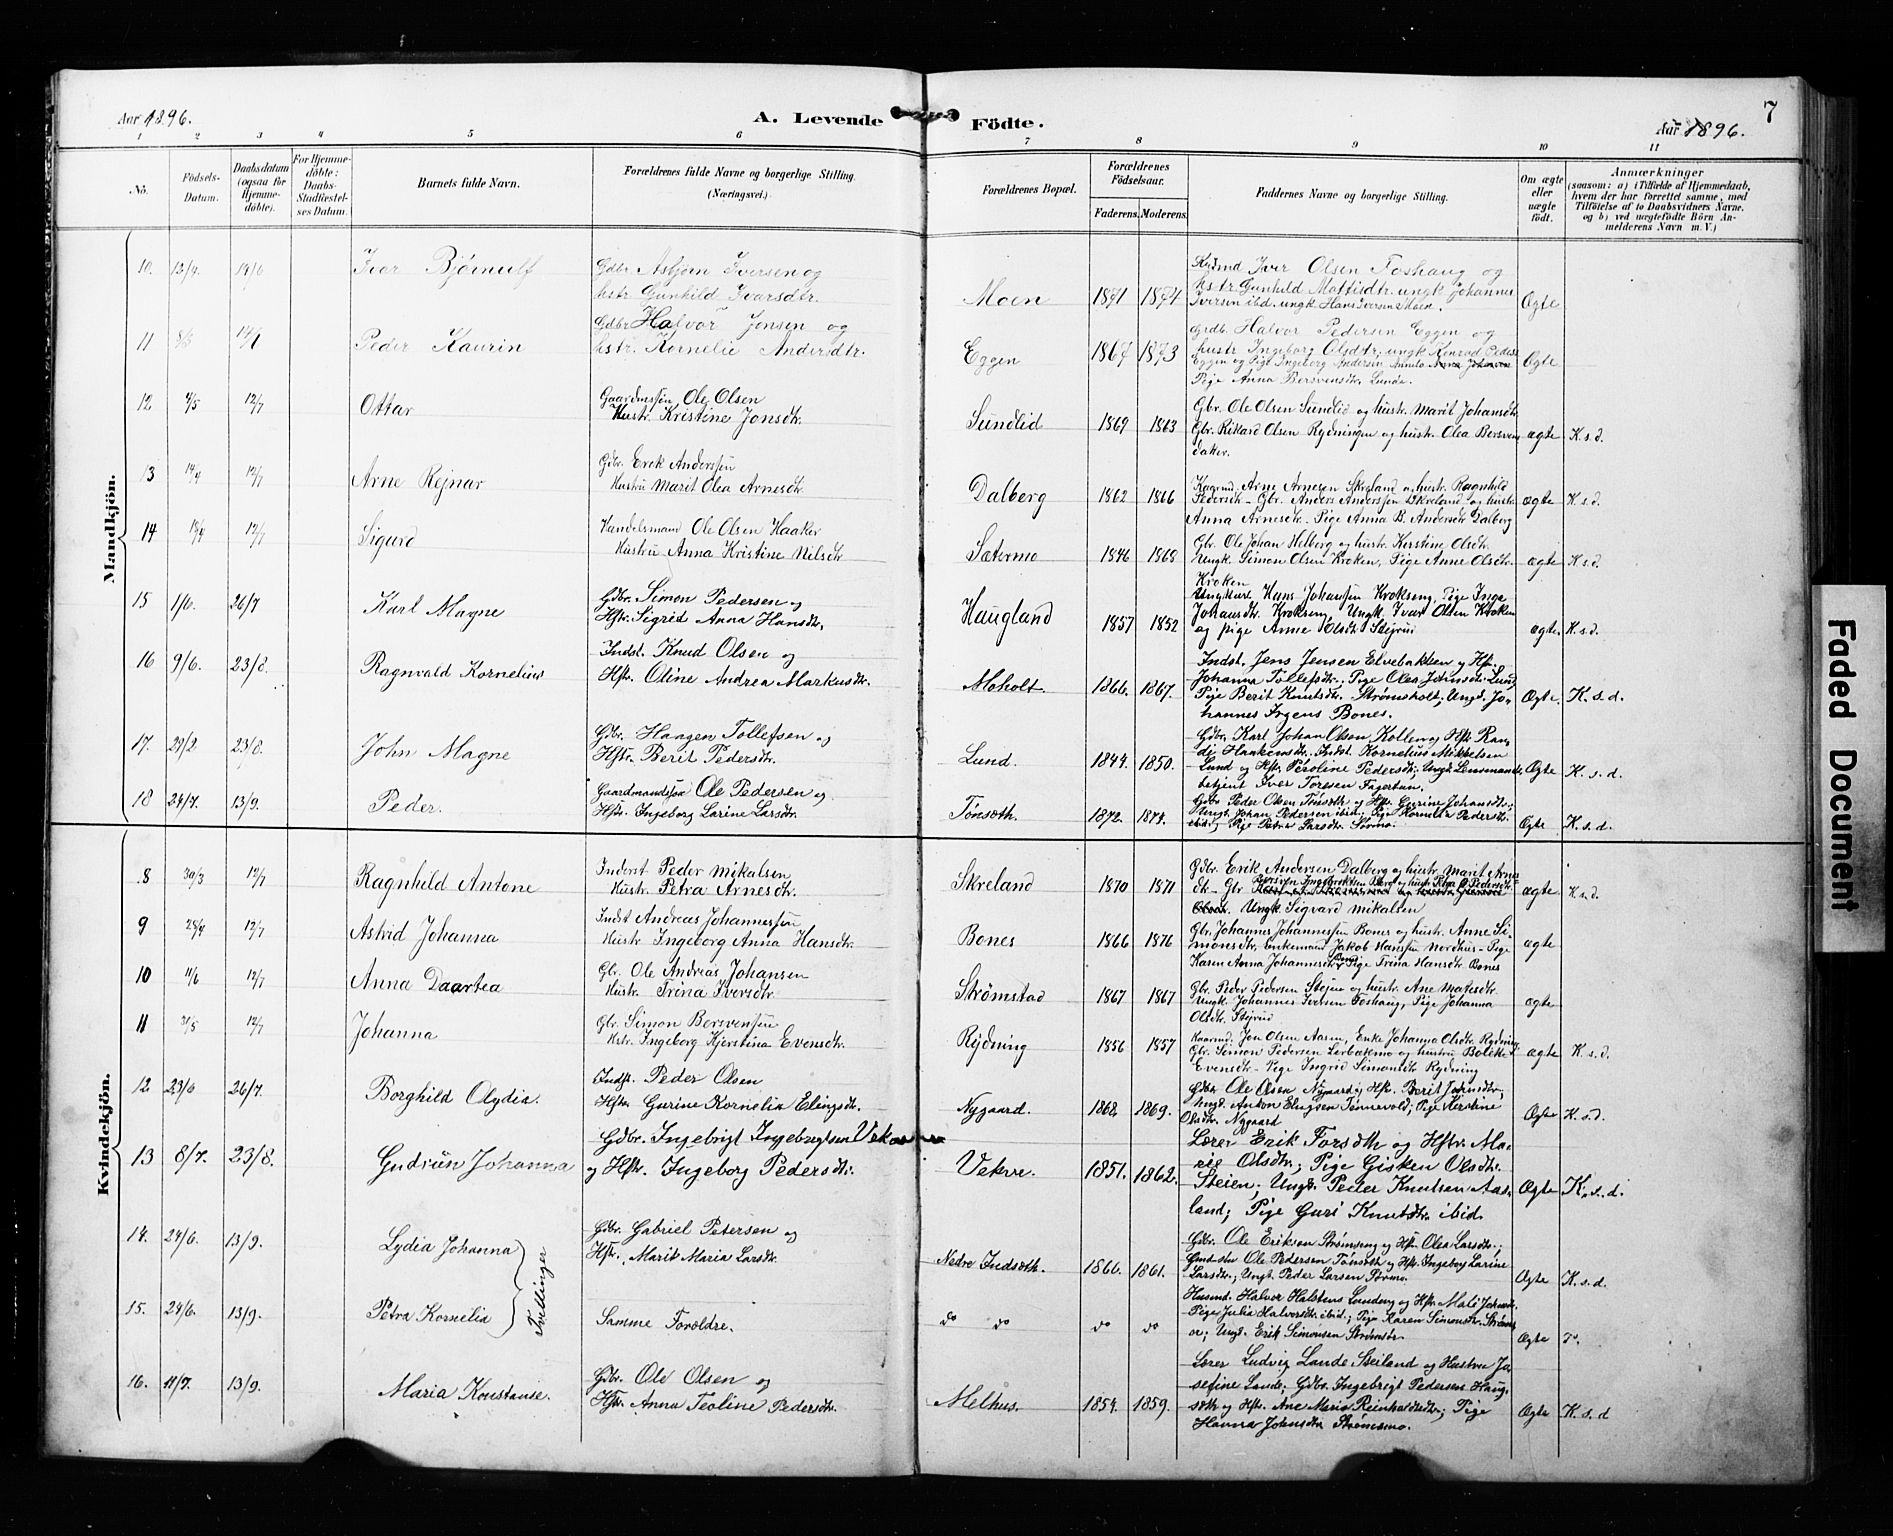 Aar 1896.
A. Levende Födte.
Aar 1896.
7
1 2 3 4 5 6 7 8 9 10 11
No.
Födsels-Datum.
Daabsdatum (ogsaa for Hjemme-döbte).
For Hjemme-döbte: Daabs-Stadfæstel-ses Datum.
Barnets fulde Navn.
Forældrenes fulde Navne og borgerlige Stilling. (Næringsvei.)
Forældrenes Bopæl.
Forældrenes Födselsaar.
Faderens. Moderens.
Faddernes Navne og borgerlige Stilling.
Om ægte eller uægte födt.
Anmærkninger
(saasom: a) i Tilfælde af Hjemmedaab,
hvem der har forrettet samme, med
Tilföielse af to Daabsvidners Navne.
og b) ved uægtefödte Börn An-
melderens Navn m. V.)
Mandkjön.
10. Ivar Bjørnulf
Gdbr. Asbjørn Iversen og
hstr. Gunhild Ivarsdtr.
Moen 1871 1874
Iver Olsen Foshaug og
hstr Gunhild Mattisdtr. ungk Johannes
Iversen ibd. ungk Hans Iversen Moen.
Ægte
11 Peder Kaurin
Gdbr Halvor Jonsen og
hstr. Kornelie Andersdtr.
Eggen 1867 1873
Grdb. Halvor Pedersen Eggen og
hustr Ingeborg Olsdtr. ungk Konrad Peders
Eggen og Pige Ingeborg Andersen
Pige Anna Bersvensdtr. Lunde.
Ægte
12 4/5 12/7 Ottar
Gaardmssøn Ole Olsen
Hustr. Kristine Jonsdtr.
Sundlid 1869 1863
Gbr. Ole Olsen Sundlid og hustr. Marit Johansdtr.
Gbr. Rikard Olsen Rydningen og hustr. Olea Bersvens
daker.
ægte K.s.d.
13 14/4 12/7 Arne Rejnar
Gdbr. Erik Anderssen
Hustru Marit Olea Arnesdtr.
Dalberg 1862 1866
Kaarmd. Arne Arnesen Skreland og hustr. Ragnhild
Pedersdtr - Gbr. Anders Anderssen Skreland og hustr.
Anna Arnesdtr. - Pige Anna B. Andersdtr Dalberg
ægte K.s.d.
14 18/4 12/7 Sigurd
Handelsmand Ole Olsen Haaker
Hustru Anna Kristine Nilsdtr
Sætermo 1846 1868
Gbr. Ole Johan Helberg og hustr. Kerstine Olsdtr.
Ungk. Simon Olsen Kroken, Pige Anne Olsdtr.
Kroken
ægte K.s.d.
15 1/6. 26/7 Karl Magne
Gdbr. Simon Pedersen og
Hstr. Sigrid Anna Hansdtr.
Haugland 1857 1852
Hans Johansen Krokseng, Pige Inga
Johansdtr. Krokseng, Ungk. Ivar Olsen Kroken
og pige Anne Olsdtr Stejrud
ægte. K.s.d.
16 9/6. 23/8. Ragnvald Kornelius
Indst. Knud Olsen og
Hstr. Oline Andrea Markusdtr.
Moholt 1866. 1867.
Indst. Jens Jensen Elvebakken og Hstr.
Johanna Tollefsdtr.; Pige Olea Johnsdtr. Lund,
Pige Berit Knutsdtr. Strømsholt; Ungk. Jo-
hannes Irgens Bones.
Ægte. K.s.d.
17. 29/2 23/8. John Magne
Gdbr. Haagen Tollefsen og
Hstr. Berit Pedersdtr.
Lund. 1844. 1850.
Gdbr. Karl Johan Olsen Kolleng og Hstr Ran-
di Haakensdtr. Indst. Kornelius Mikkelsen
Lund og Hstr. Peroline Pedersdtr; Ungk. Lensmands-
betjent Iver Toresen Fagertun.
Ægte K.s.d.
18 24/7. 13/9. Peder.
Gaardmandssøn Ole Pedersen og
Hstr. Ingeborg Larine Larsdtr.
Tønsæth. 1872. 1874.
Gdbr Peder Olsen Tønsæth og Hstr. Gurine Johansdtr.;
Ungk. Johan Pedersen ibid.; Pige Kornelia Pedersdtr.
ibid.; Pige Petra Larsdtr. Sørmo.
Ægte K.s.d.
Kvindekjön.
8 30/3 12/7 Ragnhild Antone
Inderst Peder Mikalsen
Hustr. Petra Arnesdtr.
Skreland 1870 1871
Gdbr. Erik Andersen Dalberg og hustr Marit Arnes
dtr - Gbr
Ungk. Sigvard Mikalsen
ægte K.s.d.
9 28/4 12/7 Astrid Johanna
Indst Andreas Johannessen
Hustr. Ingeborg Anna Hansdtr.
Bones 1866 1876
Gbr. Johannes Johannessen Bones og hustr. Anne Si-
monsdtr. Enkemand Jakob Hanssen Nordhus - Pige
Karen Anna Johannesdtr Pige Trina Hansdtr. Bones
ægte
10 4/6 12/7 Anna Daartea
Gbr. Ole Andreas Johansen
Hustr. Trina Iversdtr.
Strømstad 1867 1867
Gbr. Peder Pedersen Stejen og hustr. Ane Matesdtr.
Ungk. Johannes Iversen Foshaug, Pige Johanna
Olsdtr. Stejrud
ægte
11 31/5 12/7 Johanna
Gbr. Simon Bersvensen
Hstr. Ingeborg Kjerstina Evensdtr.
Rydning 1856 1857
Kaarmd. Jon Olsen Aasen, Enke Johanna Olsdtr Rydning
Gbr. Simon Pedersen Lerbakmo og hustru Bolette
Evensdtr - Pige Ingrid Simonsdtr Rydning
ægte K.s.d.
12 23/6 26/7. Borghild Olydia.
Indst. Peder Olsen
Hstr. Gurine Kornelia Elingsdtr.
Nygaard. 1868. 1869.
Gdbr. Ole Olsen Nygaard og Hstr. Berit Johnsdtr.;
Ungk. Anton Elingsen Tønnevold; Pige Kerstine
Olsdtr. Nygaard
Ægte K.s.d.
13 8/7. 23/8. Gudrun Johanna
Gdbr. Ingebrigt Ingebrigtsen
og Hstr. Ingeborg Pedersdtr.
Vekve. 1851. 1862.
Lærer Erik Forsæth og Hstr. Ma-
rie Olsdtr; Pige Gisken Olsdtr.
Steien; Ungk. Peder Knutsen Aas-
land; Pige Guri Knutsdtr. ibid.
Ægte K.s.d.
14. 24/6. 13/9. Lydia Johanna
Tvillinger
Gdbr. Gabriel Petersen og
Hstr. Marit Maria Larsdtr.
Nedre Indsæth. 1866. 1861.
Gdbr. Ole Eriksen Strømseng og Hstr Olea Larsdtr.;
Ole Pedersen Tønsæth og Hstr. Ingeborg Larine
Larsdtr.; Ungk. Peder Larsen Sørmo.
Ægte K.s.d.
15. 24/6. 13/9. Petra Kornelia
Samme Foroldre.
do do do do
Husmd. Halvor Halstens Lundeng og Hstr Mali
Pige Julia Halvorsdtr ibid.; Pige Karen Simonsdtr. Strøms
or; Ungk. Erik Simonsen Strømsør.
Ægte
16. 11/7. 13/9. Maria Konstanse.
Gdbr. Ole Olsen og
Hstr. Anna Teoline Pedersdtr.
Melhus. 1854. 1859.
Lærer Ludvig Lande Seiland og Hustru Jo-
sefine Lande; Gdbr. Ingebrigt Pedersen Haug-
sæth og Hstr. Ane Maria Reinholdsdtr.; Pige
Hanna Johnsdtr Strømsmo.
Ægte K.s.d
Faded Document